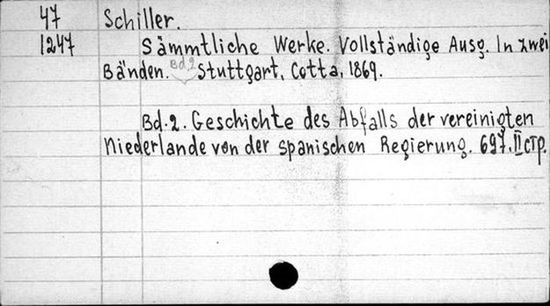 47 Schiller.
1247 Sämmtliche Werke. Vollständige Ausg. In zwei
Bänden. Bd.2 Stuttgart, Cotta, 1869.
Bd. 2. Geschichte des Abfalls der vereinigten
Niederlande von der spanischen Regierung. 697, II стр.